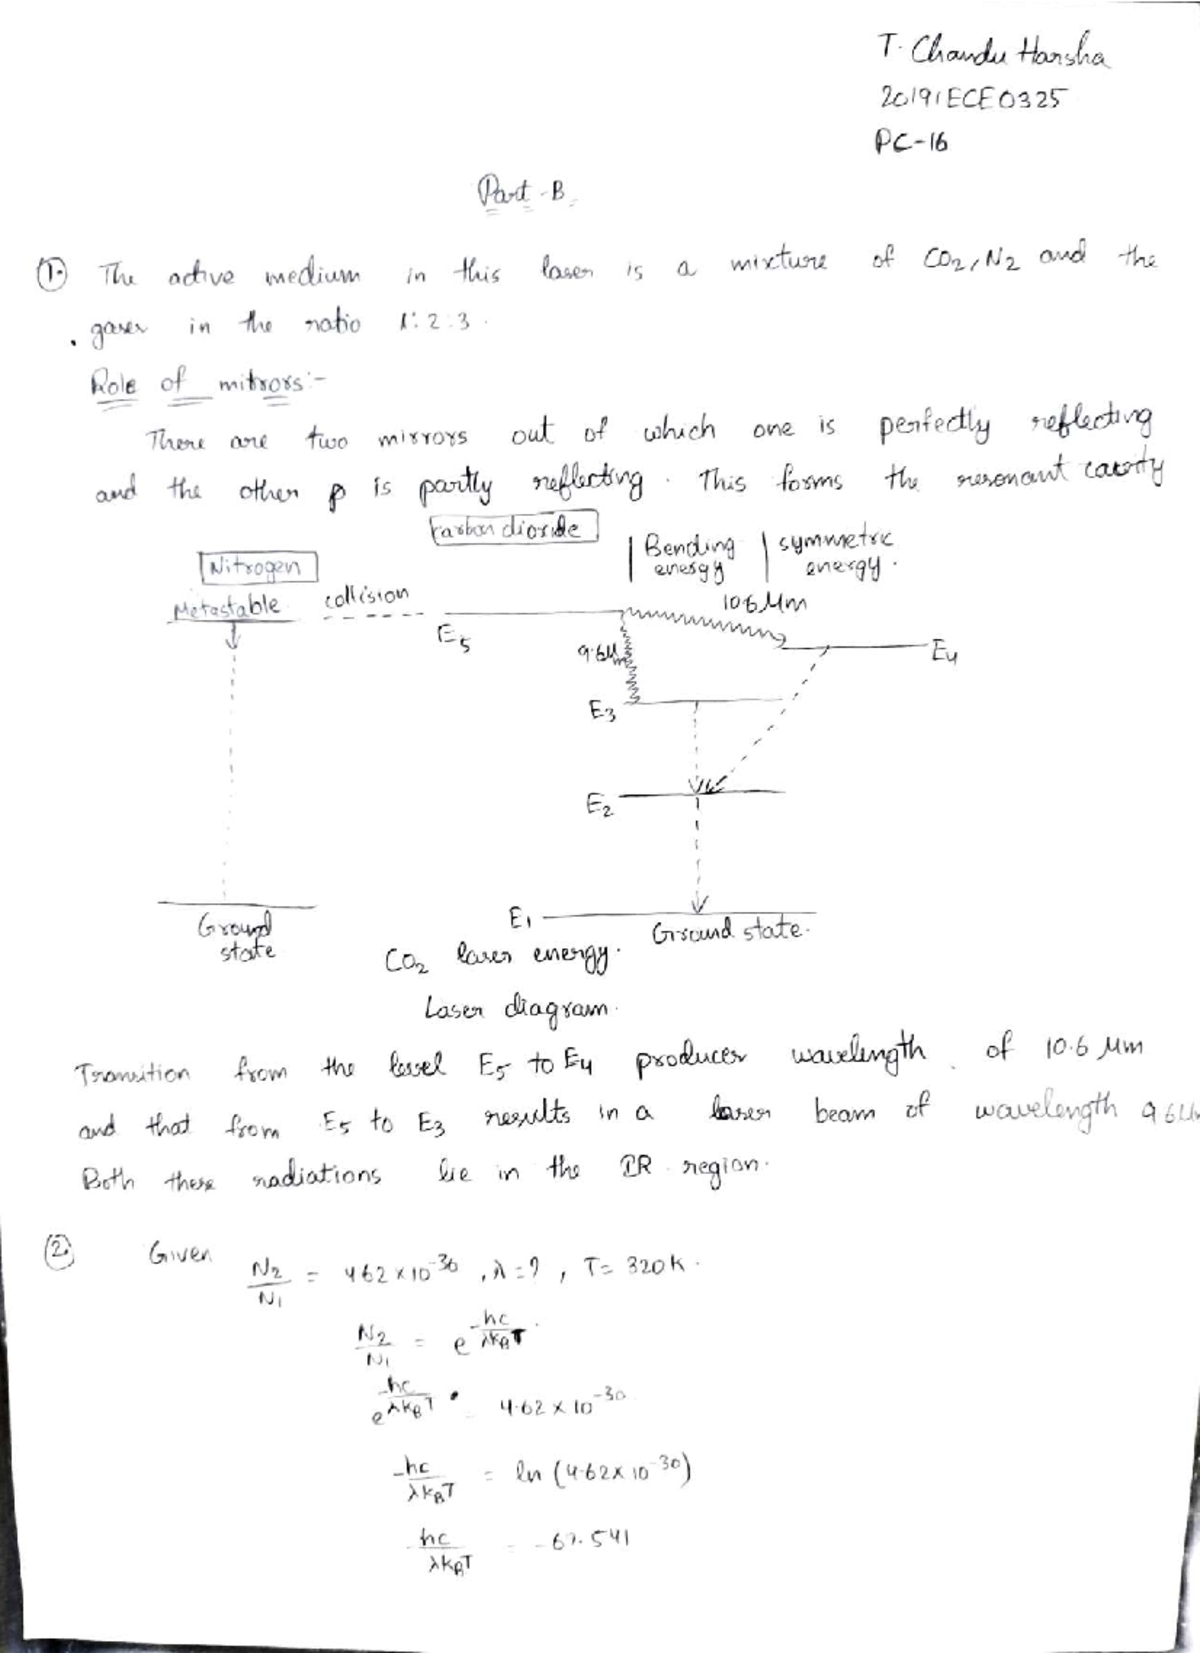 T. Chandu Harsha
20191ECE0325
PC-16
Part-B
1. The active medium in this laser is a mixture of CO2, N2 and the
gases in the ratio 1:2:3.
Role of mirrors:-
There are two mirrors out of which one is perfectly reflecting
and the other is partly reflecting. This forms the resonant cavity
Carbon dioxide
Nitrogen
Bending energy
symmetric energy.
Metastable
collision
10.6 μm
E5
9.6μm
E4
E3
E2
E1
Ground state
Ground state.
CO2 laser energy.
Laser diagram.
Transition from the level E5 to E4 produces wavelength of 10.6 μm
and that from E5 to E3 results in a laser beam of wavelength 9.6μm
Both these radiations lie in the IR region.
2. Given N2/N1 = 4.62 × 10^-30, λ = ?, T = 320K.
N2/N1 = e^(-hc/λkBT)
e^(-hc/λkBT) = 4.62 × 10^-30
-hc/λkBT = ln (4.62 × 10^-30)
hc/λkBT = -67.541